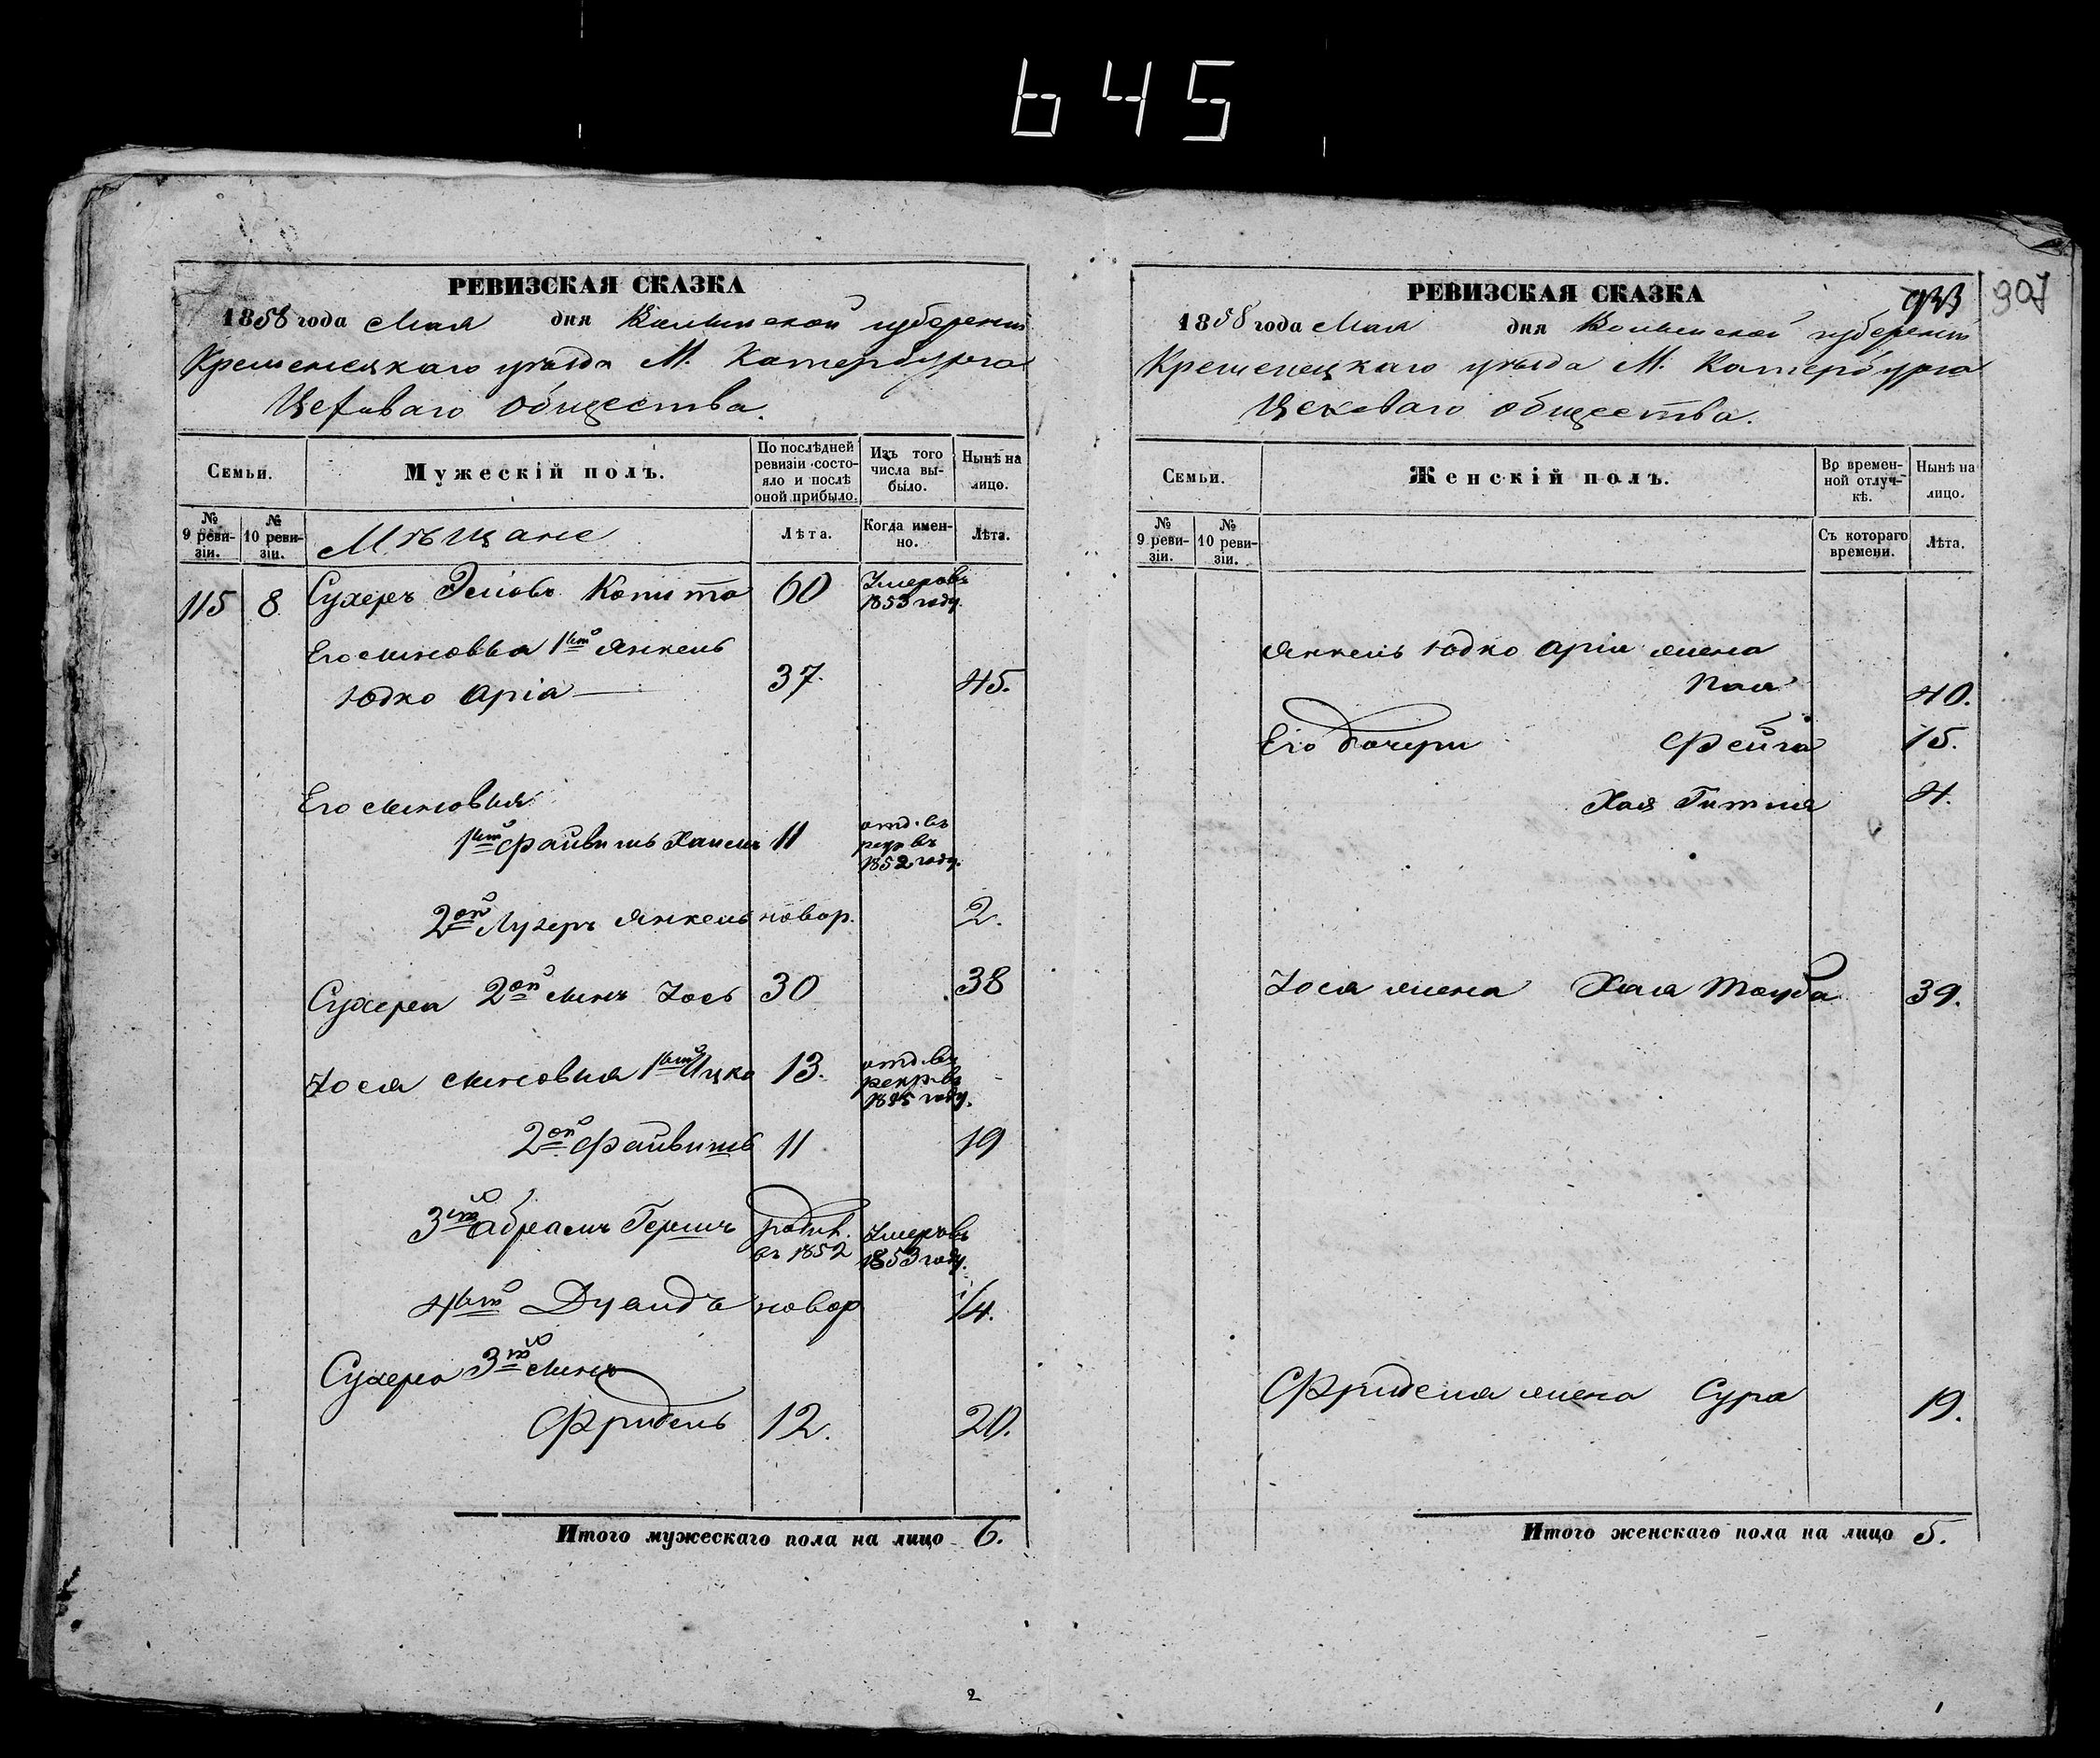 645
РЕВИЗСКАЯ СКАЗКА
1858 года Мая дня Волынской губернии
Кременецкаго уѣзда М. Катербурга
Цеховаго Общества.
Семьи.
Мужескій полъ.
По послѣдней ревизіи состояло и послѣ оной прибыло.
Изъ того числа выбыло.
Нынѣ на лицо.
№ 9 ревизіи.
№ 10 ревизіи.
Мѣщане
Лѣта.
Когда именно.
Лѣта.
115 8 Сухеръ Копита 60 Умеръ въ 1853 году.
Его сыновья 1ый Янкель
Юдко Арія 37. 45.
Его сыновья
1ый Файвишъ Хаимъ 11 отд. въ рекр. въ 1852 году.
2ой Янкель новор. 2.
Сухера 2ой сынъ Іось 30 38
Іося сыновья 1ый Ицко 13. отд. въ рекр. въ году.
2ой Файвишъ 11 19
3ій Абрамъ Гершъ родив. въ 1852 Умеръ въ 1853 году.
4ый новор 1/4.
Сухера 3ій сынъ
Фридель 12. 20.
Итого мужескаго пола на лицо 6.
2
РЕВИЗСКАЯ СКАЗКА
307
1858 года Мая дня Волынской губернии
Кременецкаго уѣзда М. Катербурга
Цеховаго общества.
Семьи.
Женскій полъ.
Во временной отлучкѣ.
Нынѣ на лицо.
№ 9 ревизіи.
№ 10 ревизіи.
Съ котораго времени.
Лѣта.
Янкель Юдко Арія жена
40.
Его дочери Фейга 15.
Хая Гитля 4.
Іося жена Хая Тауба 39.
Фриделя жена Сура 19.
Итого женскаго пола на лицо 5.
1